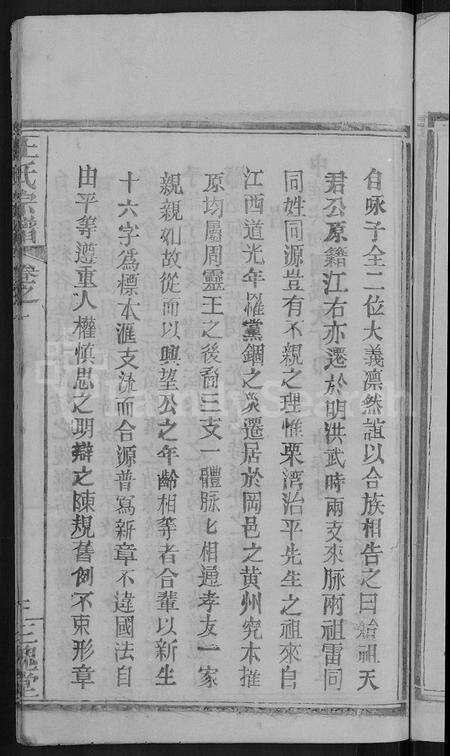 自咏子全二位大義凛然誼以合族相告之曰始祖天
君公原籍江右亦遷於明洪武時兩支來脉兩祖雷同
同姓同源豈有不親之理惟栗湾治平先生之祖來自
江西道光年罹黨錮之災遷居於岡邑之黄州究本推
原均屬周靈王之後裔三支一體脉匕相通孝友一家
親親如故從而以興望公之年齡相等者合輩以新生
十六字為標本滙支流而合源普寫新章不違國法自
由平等遵重人權慎思之明辯之陳規舊例不束形章
王氏宗譜
卷之一
三槐堂